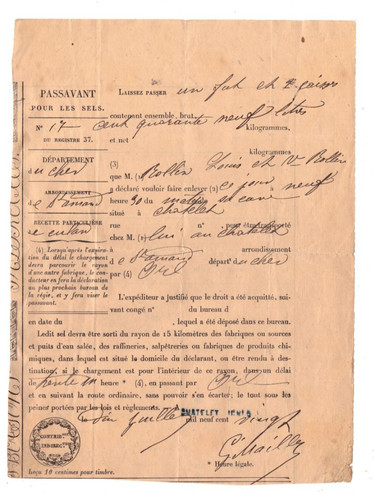 PASSAVANT
POUR LES SELS.
N° 17
DU REGISTRE 37.
DÉPARTEMENT
du cher
ARRONDISSEMENT
de St amand
RECETTE PARTICULIÈRE
de culan
(4) Lorsqu'après l'expiration
du délai le chargement
devra parcourir le rayon
d'une autre fabrique, le conducteur
en fera la déclaration
au plus prochain bureau de
la régie, et y fera viser le
passavant.
LAISSEZ PASSER un fut et 2
contenant ensemble, brut
cent quarante neuf litres
kilogrammes,
et net
kilogrammes
(3)
que M. ( Rollin Louis et Vve Rollin
a déclaré vouloir faire enlever ce jour neuf
heure du matin sa cave
situé à chatelet
rue n° pour être transporté
chez M. ( lui au chatelet
à St amand arrondissement
départ' du cher
par (4)
L'expéditeur a justifié que le droit a été acquitté, suivant
congé n° du bureau d
en date du , lequel a été déposé dans ce bureau.
Ledit sel devra être sorti du rayon de 15 kilomètres des fabriques ou sources
et puits d'eau salée, des raffineries, salpêtreries ou fabriques de produits chimiques,
dans lequel est situé le domicile du déclarant, ou être rendu à destination,
si le chargement est pour l'intérieur de ce rayon, dans un délai
de heure * (4), en passant par
et en suivant la route ordinaire, sans pouvoir s'en écarter; le tout sous les
peines portées par les lois et règlements.
CHATELET (CHER)
juillet mil neuf cent vingt
G. Mailly
* Heure légale.
CONTRIB.
INDIREC.
Reçu 10 centimes pour timbre.